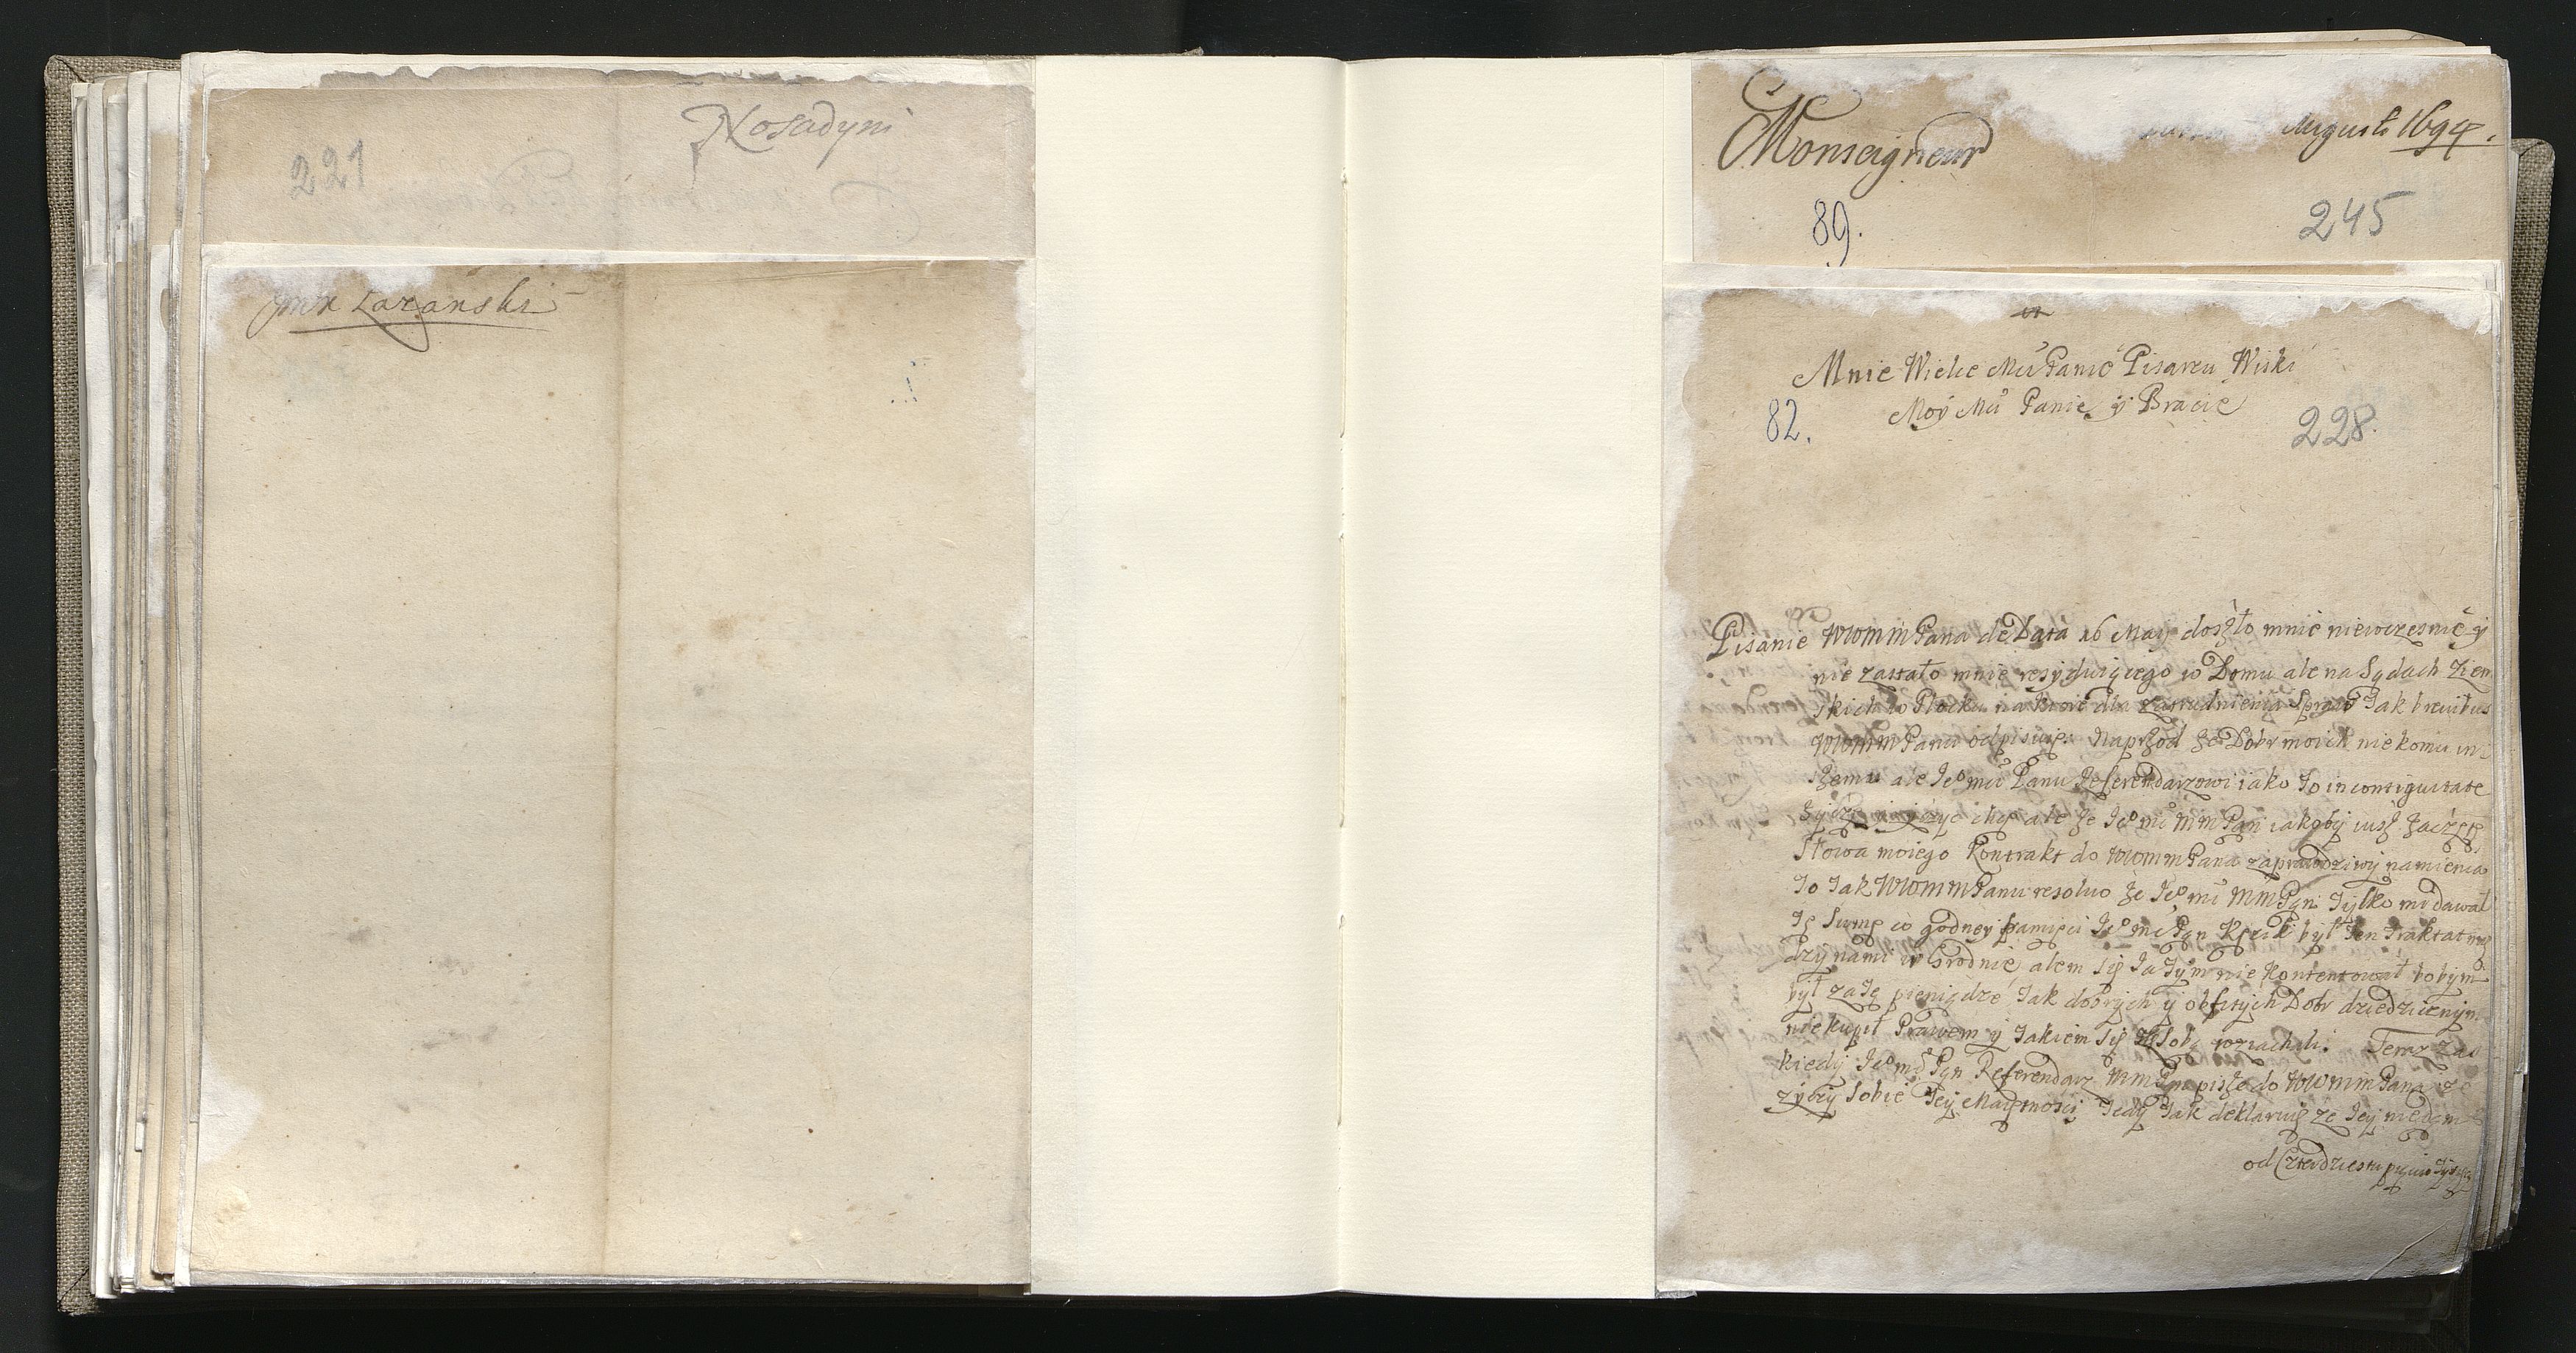 Nosadyni
221
Łazanski
Monseigneur
Augusti 1694.
89.
245
Mnie Wielce Mći Panie Pisarzu Wiski
Moy Mći Panie y Bracie
82.
228.
Pisanie WMM Pana de Data 26 May doszło mnie niewczesnie y
nie zastało mnie rezyduiącego w Domu ale na Sądach Ziem
skich w Płocku na ktore dla zatrudnienia Spraw Tak brevibus
WMM Panu odpisuię. Naprzod że Dobr moich nie komu in
szemu ale Je⁰ mći Panu Referendarzowi iako Jo in contiguitate
życzę y życzyć chcę ale że Je⁰ mć MM Pan iakoby iusz
Słowa moiego Kontrakt do WMM Pana namienia
To Tak WMM Panu że Je⁰ mć MM Pan Tylko mi dawał
Tę Summę co godney pamięci Je⁰ mć Pan był Ten Traktat mię
dzy nami w Grodnie alem się Ja Tym nie kontentował bobym
był za Te pieniądze Tak dobrych y obfitych Dobr dziedzicznym
nie kupił Prawem y Takiem się z Sobą roziachali. Teraz zas
kiedy Je⁰ mć Pan Referendarz MM Pan pisze do WMM Pana ze
zyczy Sobie Tey Maiętnosci Tedy Tak deklaruię ze Tey nie dam
od Czterdziestu pięciu